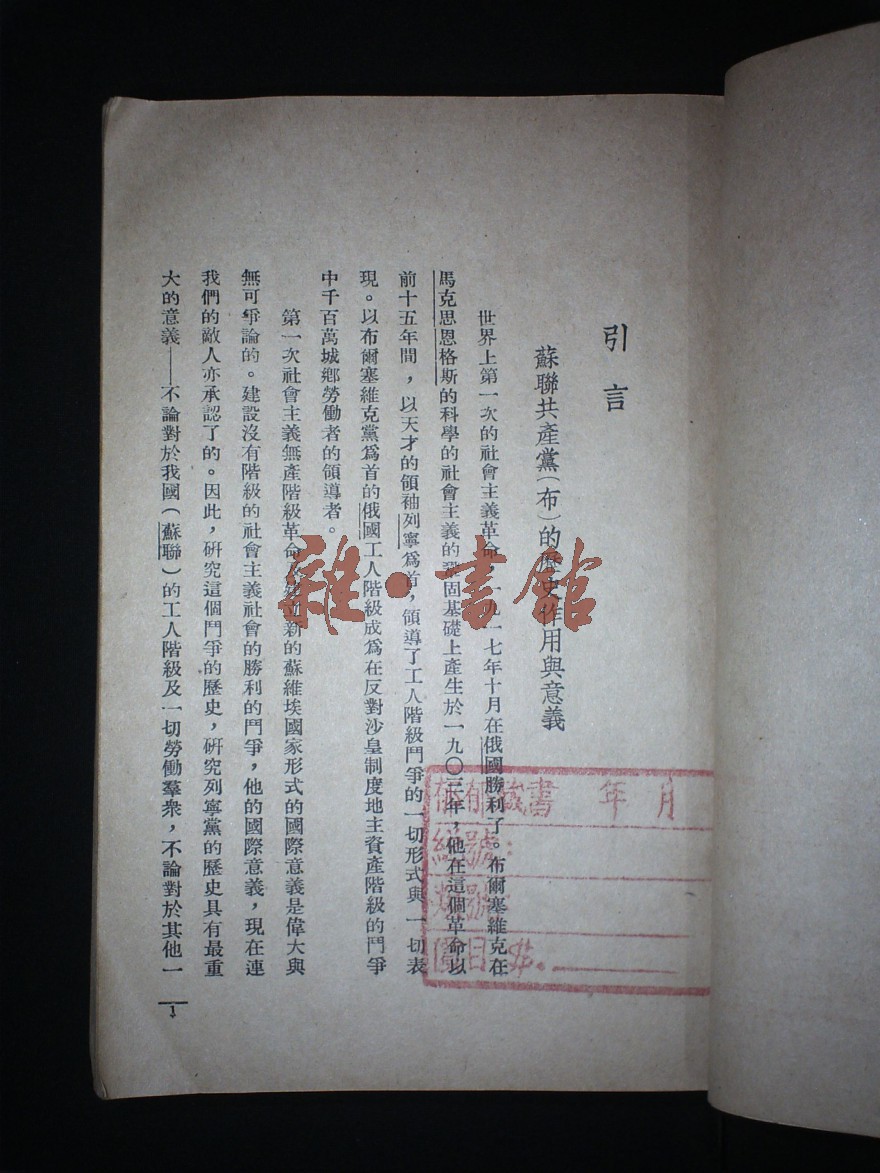 引言
蘇聯共產黨(布)的歷史作用與意義
世界上第一次的社會主義革命,一九一七年十月在俄國勝利了。布爾塞維克在
馬克思恩格斯的科學的社會主義的鞏固基礎上產生於一九〇三年,他在這個革命以
前十五年間,以天才的領袖列寧爲首,領導了工人階級鬥爭的一切形式與一切表
現。以布爾塞維克黨爲首的俄國工人階級成爲在反對沙皇制度地主資產階級的鬥爭
中千百萬城鄉勞働者的領導者。
第一次社會主義無產階級革命及建立新的蘇維埃國家形式的國際意義是偉大與
無可爭論的。建設沒有階級的社會主義社會的勝利的鬥爭,他的國際意義,現在連
我們的敵人亦承認了的。因此,研究這個鬥爭的歷史,研究列寧黨的歷史具有最重
大的意義——不論對於我國(蘇聯)的工人階級及一切勞働羣衆,不論對於其他一
1
雜·書館
藏書 年 月
號:
價目 $.